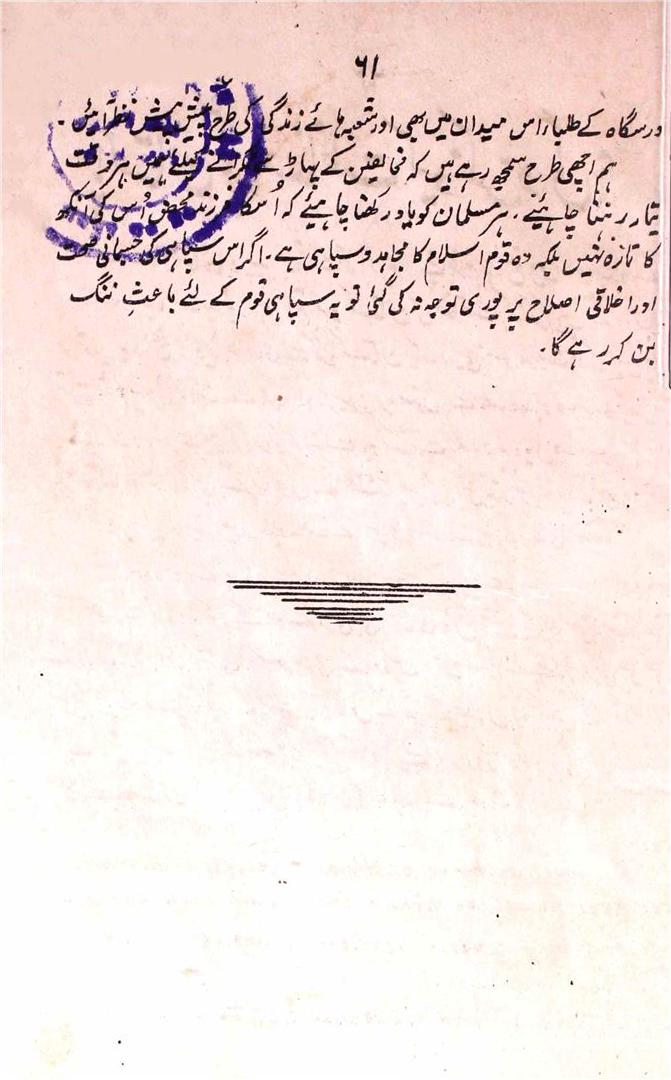 ۶۱
درسگاہ کے طلباء اس میدان میں بھی اور شعبہ ہائے زندگی کی طرح پیش پیش نظر آئیں۔
ہم اچھی طرح سمجھ رہے ہیں کہ مخالفین کے پہاڑ سے ٹکرانے کیلئے ہمیں ہر وقت
تیار رہنا چاہئیے۔ ہر مسلمان کو یاد رکھنا چاہئیے کہ اُسکا فرزند محض اُس کی آنکھ
کا تارہ نہیں بلکہ وہ قوم اسلام کا مجاہد و سپاہی ہے۔ اگر اس سپاہی کی جسمانی صحت
اور اخلاقی اصلاح پر پوری توجہ نہ کی گئی تو یہ سپاہی قوم کے لئے باعثِ ننگ
بن کر رہے گا۔